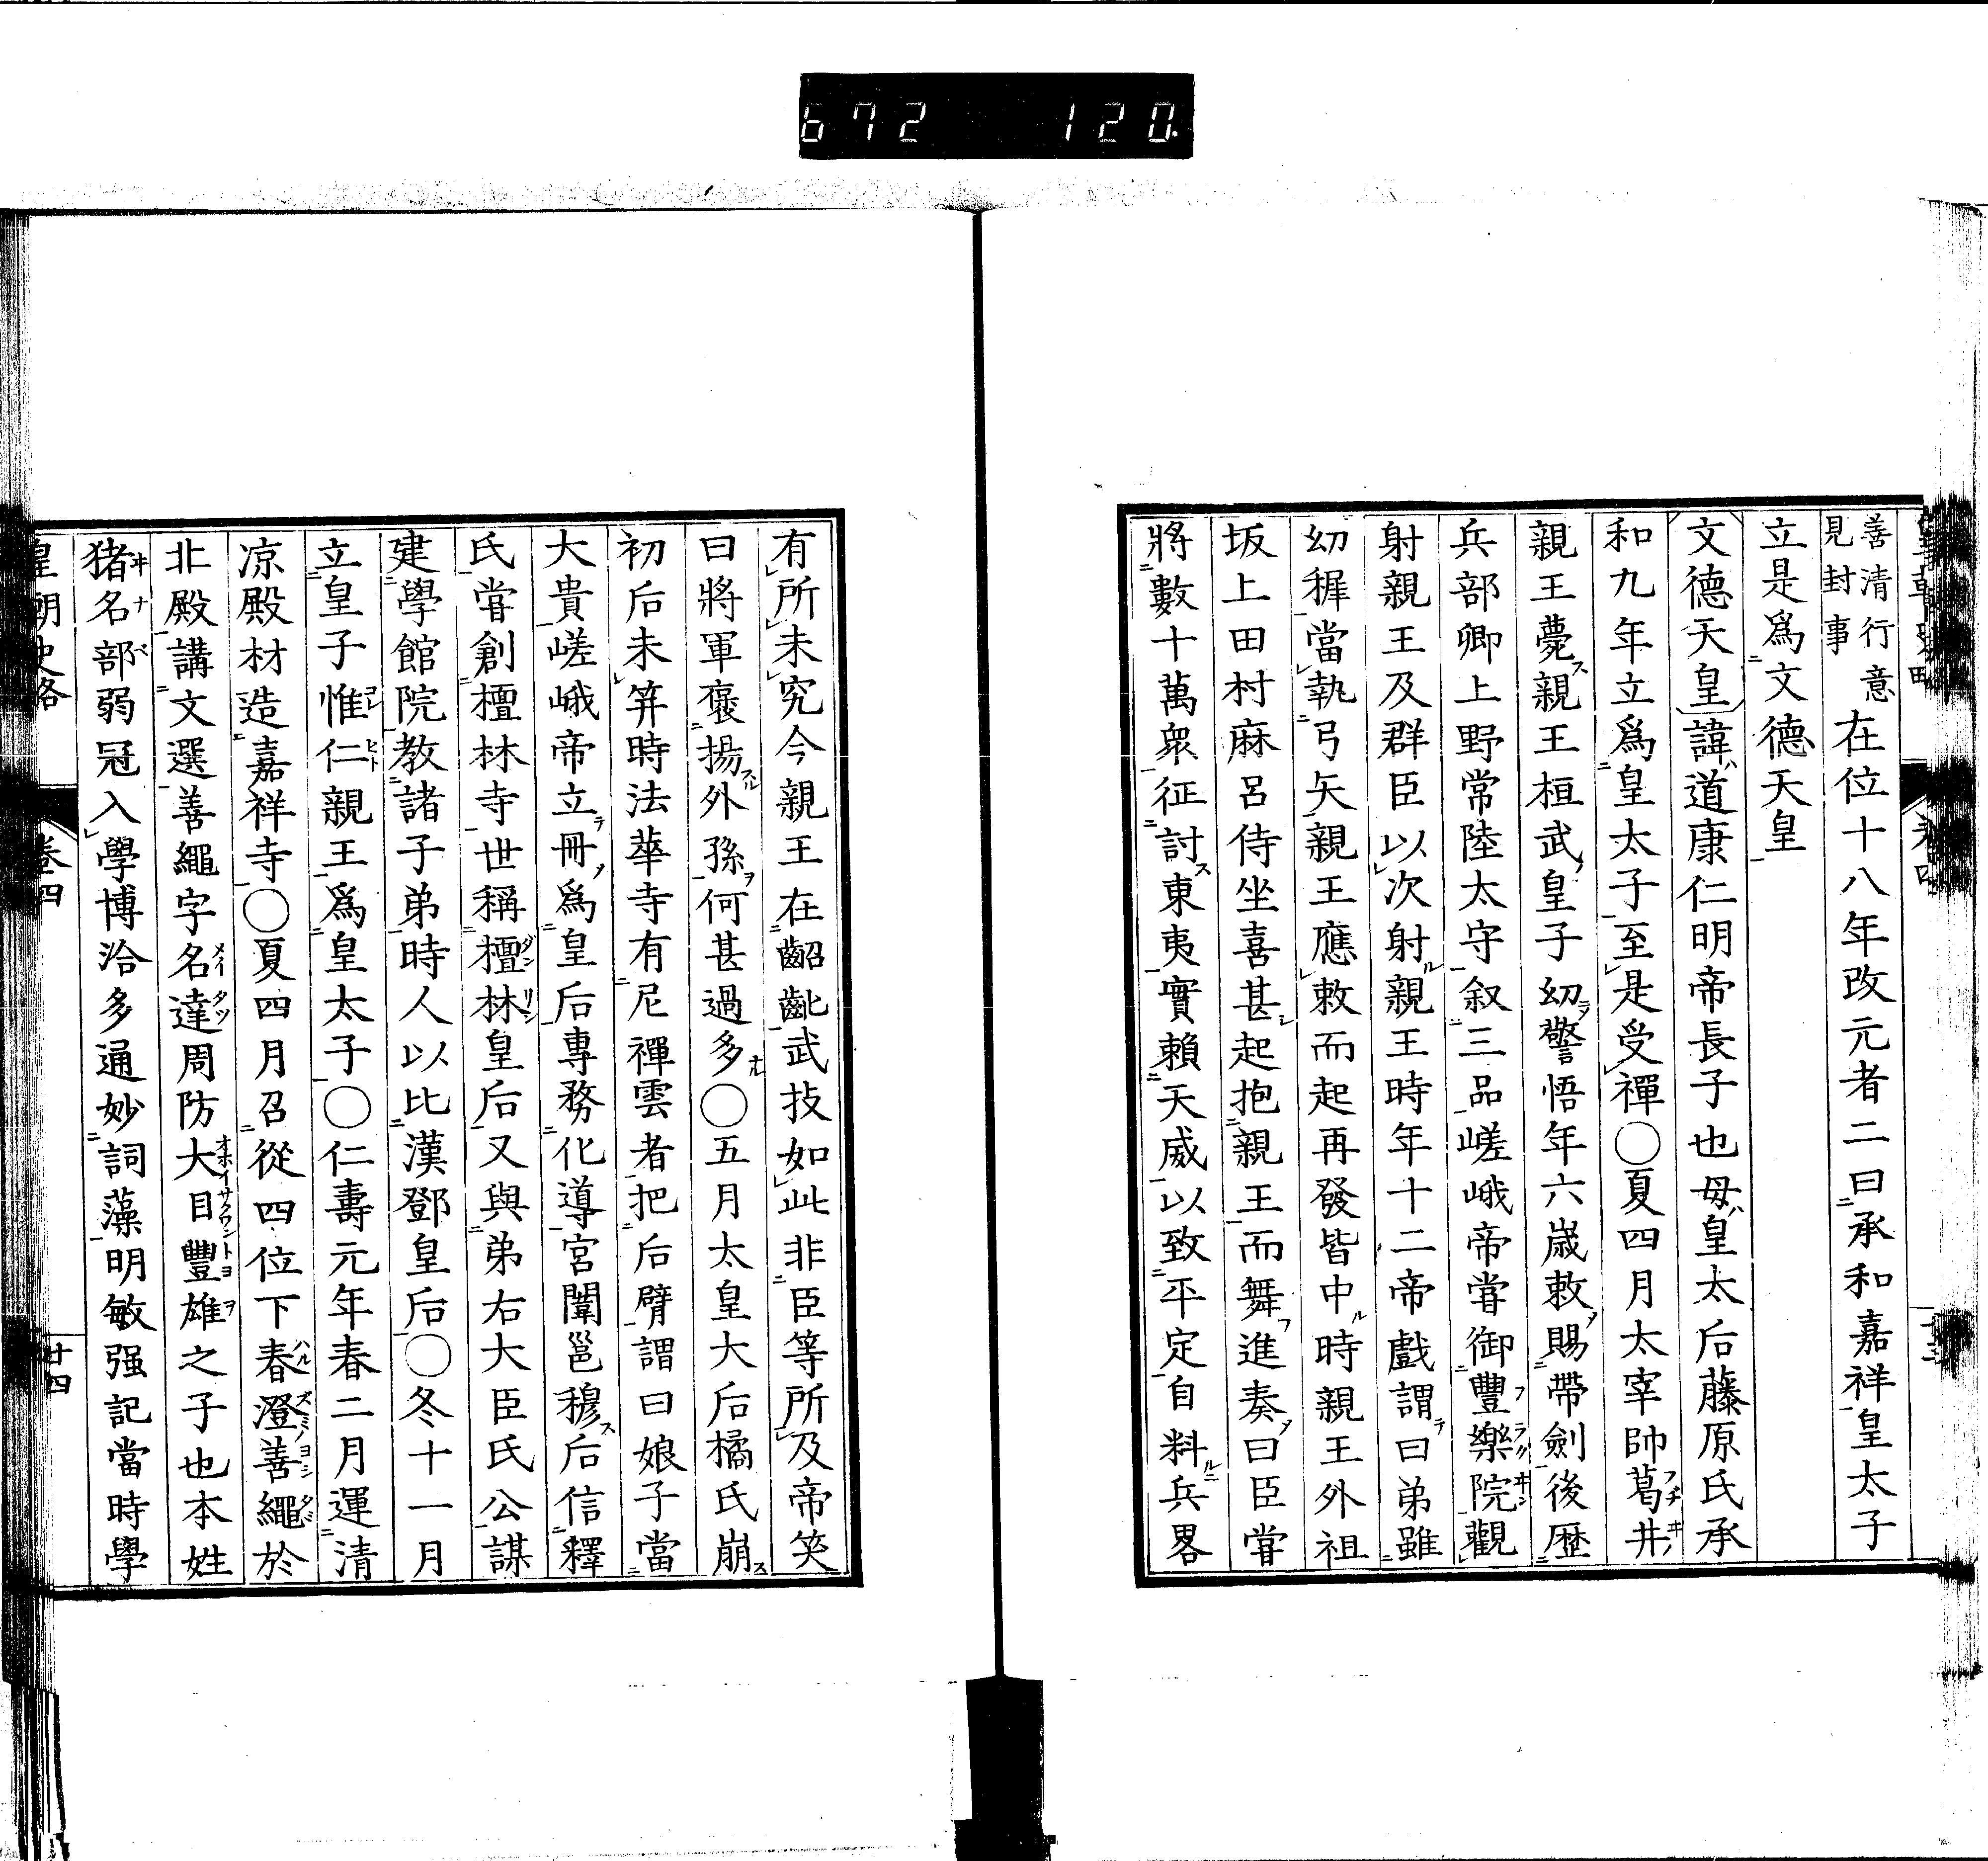 672 120
善清行意
見封事
在位十八年改元者二曰承和嘉祥皇太子
立是爲文德天皇
文德天皇諱道康仁明帝長子也母皇太后藤原氏承
和九年立爲皇太子至是受禪〇夏四月太宰帥葛井
親王薨親王桓武皇子幼警悟年六歲敕賜帶劍後歷
兵部卿上野常陸太守叙三品嵯峨帝嘗御豐樂院觀
射親王及群臣以次射親王時年十二帝戲謂曰弟雖
幼穉當執弓矢親王應敕而起再發皆中時親王外祖
坂上田村麻呂侍坐喜甚起抱親王而舞進奏曰臣嘗
將數十萬衆征討東夷實賴天威以致平定自料兵畧
有所未究今親王在齠齔武技如此非臣等所及帝笑
曰將軍褒揚外孫何甚過多〇五月太皇大后橘氏崩
初后未笄時法華寺有尼禪雲者把后臂謂曰娘子當
大貴嵯峨帝立冊爲皇后專務化導宮闈邕穆后信釋
氏嘗創檀林寺世稱檀林皇后又與弟右大臣氏公謀
建學館院教諸子弟時人以比漢鄧皇后〇冬十一月
立皇子惟仁親王爲皇太子〇仁壽元年春二月運清
凉殿材造嘉祥寺〇夏四月召從四位下春澄善繩於
北殿講文選善繩字名達周防大目豐雄之子也本姓
猪名部弱冠入學博洽多通妙詞藻明敏强記當時學
皇朝史略 卷四 廿四